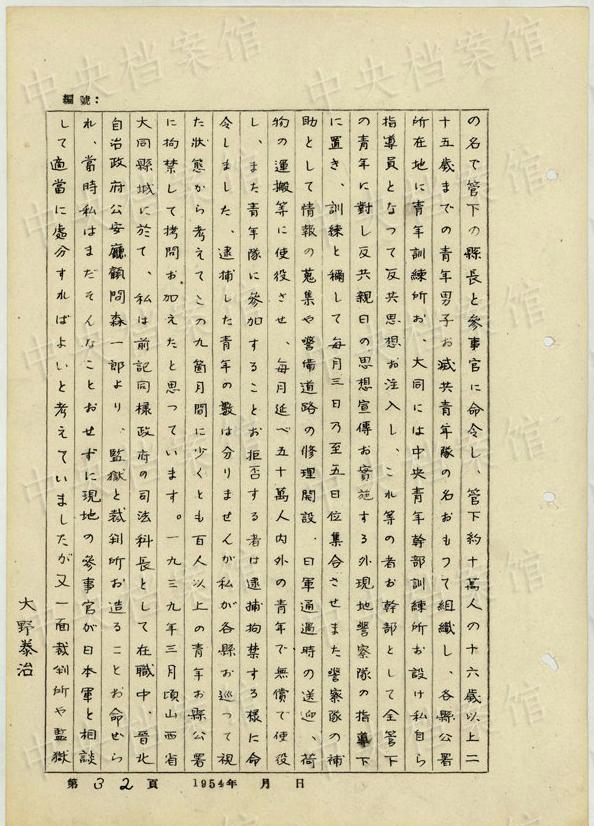 編號：
の名で管下の縣長と參事官に命令し、管下約十萬人の十六歲以上二
十五歲までの青年男子お滅共青年隊の名おもつて組織し、各縣公署
所在地に青年訓練所お、大同には中央青年幹部訓練所お設け私自ら
指導員となつて反共思想お注入し、これ等の者お幹部として全管下
の青年に對し反共親日の思想宣傳お實施する外現地警察隊の指導下
に置き、訓練と稱して每月三日乃至五日位集合させまた警察隊の補
助として情報の蒐集や警備道路の修理開設、日軍通過時の送迎、荷
物の運搬等に使役させ、每月延べ五十萬人內外の青年で無償で使役
し、また青年隊に參加することお拒否する者は逮捕拘禁する樣に命
令しました、逮捕した青年の數は分りませんが私が各縣お巡つて視
た狀態から考えてこの九箇月間に少くとも百人以上の青年お縣公署
に拘禁して拷問お加えたと思つています。一九三九年三月頃山西省
大同縣城に於て、私は前記同樣政府の司法科長として在職中、晉北
自治政府公安廳顧問森一郎より、監獄と裁判所お造ることお命ぜら
れ、當時私はまだそんなことおせずに現地の參事官が日本軍と相談
して適當に處分すればよいと考えていましたが又一面裁判所や監獄
大野泰治
第32頁 1954年 月 日
中央档案馆